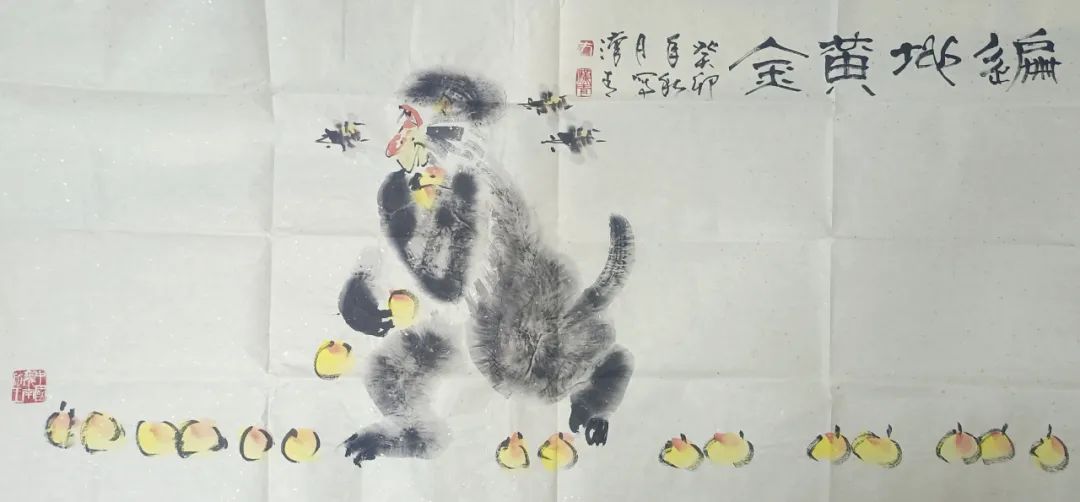 遍地黄金
癸卯
年秋
月写